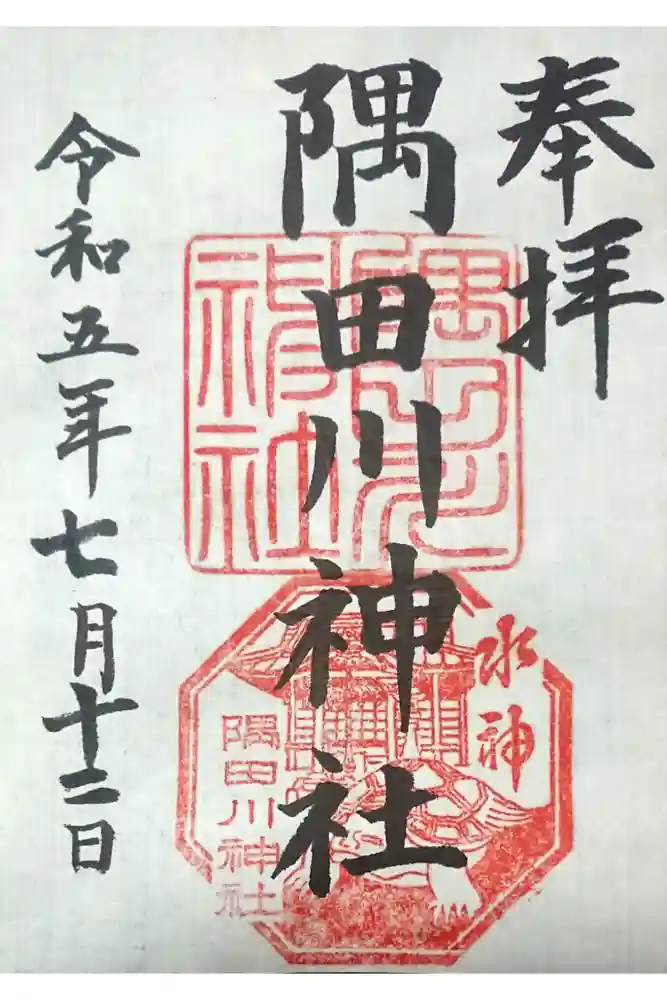 奉拝
隅田川神社
隅田川神社
水神
隅田川神社
令和五年七月十二日